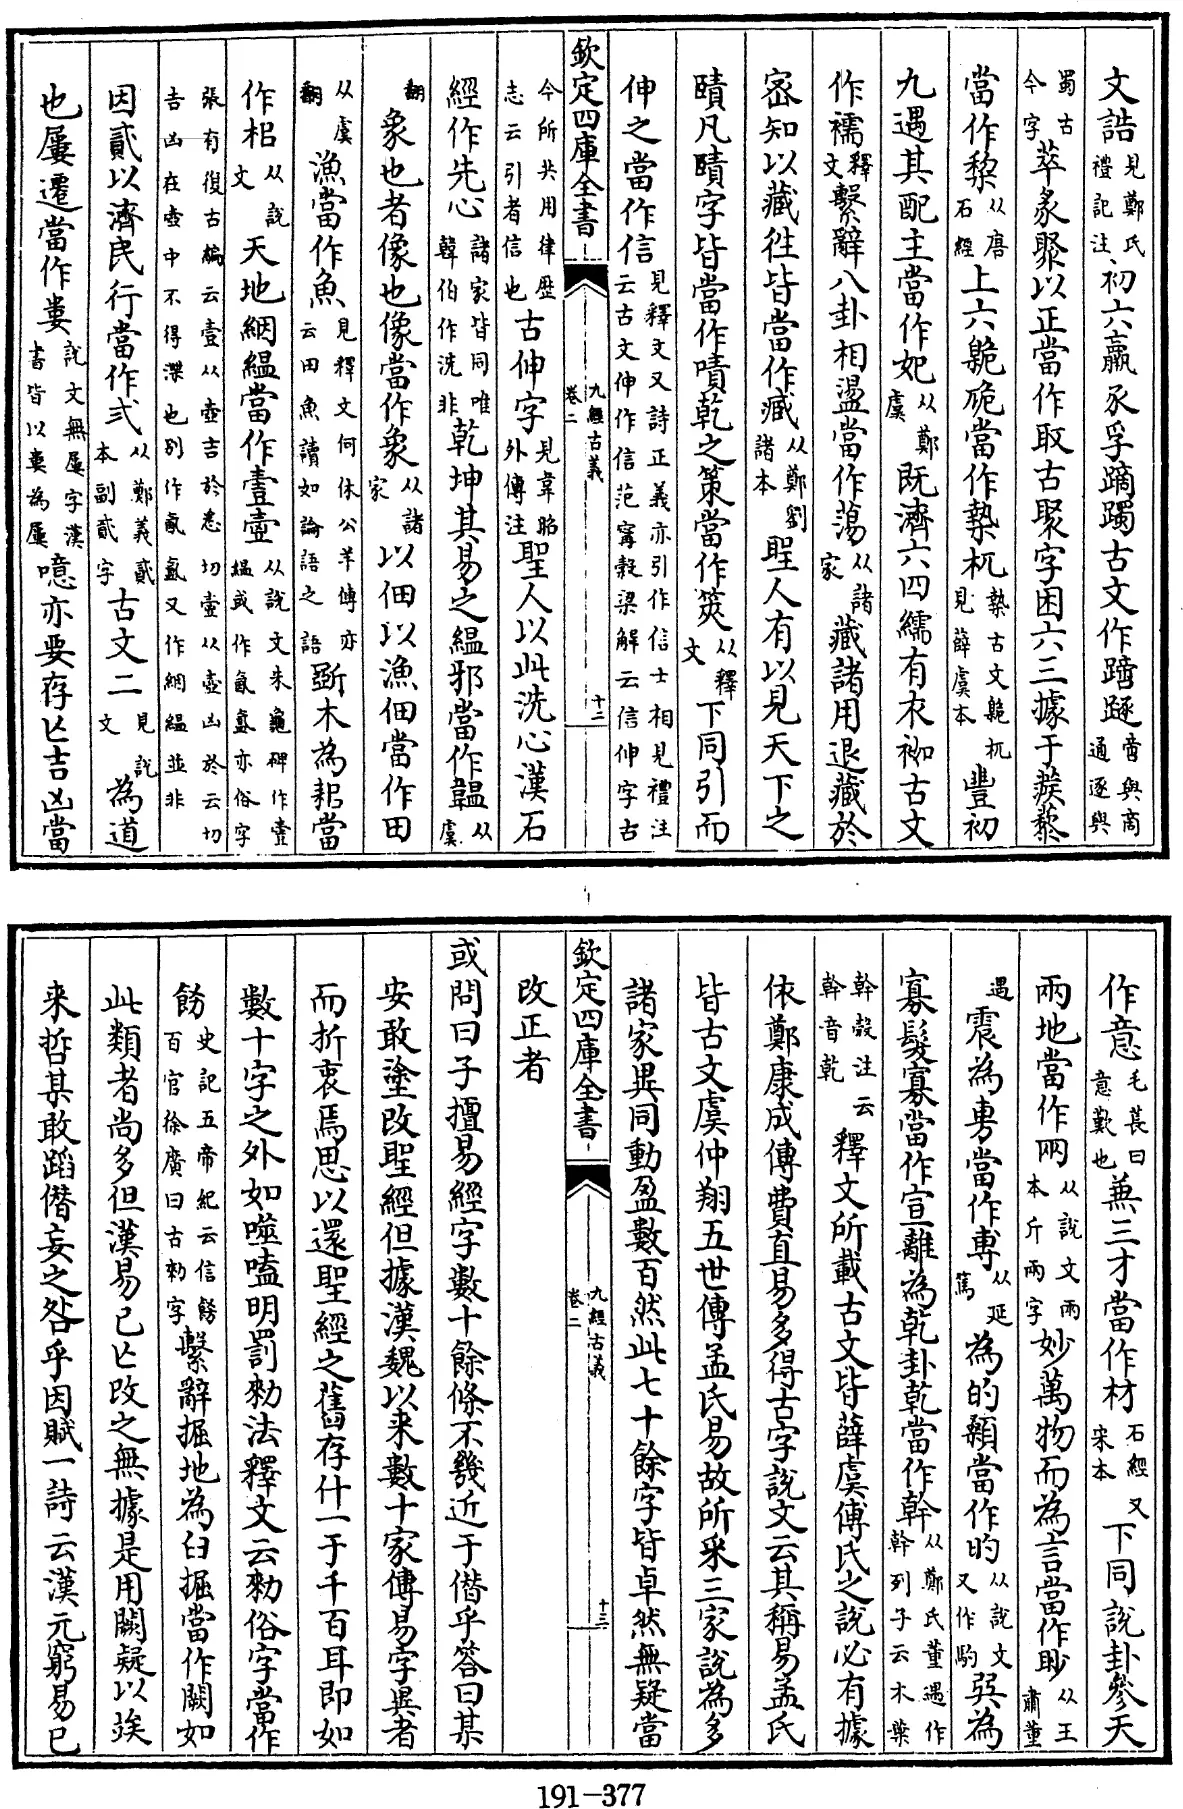 文誥見鄭氏禮記注初六羸豕孚蹢躅古文作蹢䠱啻與商通逐與
蜀古今字萃彖聚以正當作取古聚字困六三據于蒺藜
當作黎从唐石經上六臲卼當作槷杌槷古文臲杌見薛虞本豐初
九遇其配主當作妃从鄭虞既濟六四繻有衣袽古文
作襦釋文繫辭八卦相盪當作蕩从諸家藏諸用退藏於
宻知以藏徃皆當作臧从鄭劉諸本聖人有以見天下之
賾凡賾字皆當作嘖乾之策當作筴从釋文下同引而
伸之當作信見釋文又詩正義亦引作信士相見禮注云古文伸作信范寗穀梁解云信伸字古
欽定四庫全書
九經古義
卷二
十二
今所共用律歴志云引者信也古伸字見韋昭外傳注聖人以此洗心漢石
經作先心諸家皆同唯韓伯作洗非乾坤其易之緼邪當作韞从虞
翻象也者像也像當作象从諸家以佃以漁佃當作田
从虞翻漁當作魚見釋文何休公羊傳亦云田魚讀如論語之語斲木為耜當
作梠从說文天地絪緼當作壹壺从說文朱龜碑作壹緼或作氤氲亦俗字
張有復古編云壹从壺吉於悉切壺从壺凶於云切吉凶在壺中不得渫也别作氤氲又作絪緼並非
因貳以濟民行當作弍从鄭義貳本副貳字古文二見說文為道
也屢遷當作婁說文無屢字漢書皆以婁為屢噫亦要存亡吉凶當
作意毛萇曰意歎也兼三才當作材石經宋本又下同說卦參天
兩地當作㒳从說文兩本斤兩字妙萬物而為言當作眇从王肅董
遇震為旉當作專从延篤為的顙當作旳从說文又作馰巽為
寡髮寡當作宣離為乾卦乾當作幹从鄭氏董遇作幹列子云木葉
幹殼注云幹音乾釋文所載古文皆薛虞傅氏之說必有據
依鄭康成傳費直易多得古字說文云其稱易孟氏
皆古文虞仲翔五世傳孟氏易故所采三家說為多
諸家異同動盈數百然此七十餘字皆卓然無疑當
改正者
欽定四庫全書
九經古義
卷二
十三
或問曰子擅易經字數十餘條不幾近于僭乎答曰某
安敢塗改聖經但據漢魏以來數十家傳易字異者
而折衷焉思以還聖經之舊存什一于千百耳即如
數十字之外如噬嗑明罰勑法釋文云勑俗字當作
飭史記五帝紀云信飭百官徐廣曰古勑字繫辭掘地為臼掘當作闕如
此類者尚多但漢易已亡改之無據是用闕疑以竢
來哲某敢蹈僭妄之咎乎因賦一詩云漢元窮易已
191-377